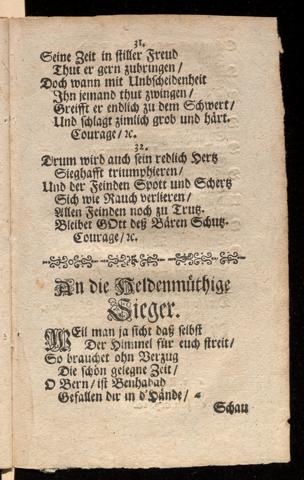 31.
Seine Zeit in stiller Freud
Thut er gern zubringen /
Doch wann mit Unbscheidenheit
Ihn jemand thut zwingen /
Greifft er endlich zu dem Schwert /
Und schlagt zimlich grob und härt.
Courage / ꝛc.
32.
Drum wird auch sein redlich Hertz
Sieghafft triumphieren /
Und der Feinden Spott und Schertz
Sich wie Rauch verlieren /
Allen Feinden noch zu Trutz.
Bleibet GOtt deß Bären Schutz.
Courage / ꝛc.
An die Heldenmüthige
Sieger.
WEil man ja sicht daß selbst
Der Himmel für euch streit /
So brauchet ohn Verzug
Die schön gelegne Zeit /
O Bern / ist Benhadad
Gefallen dir in d'Hände /
Schau